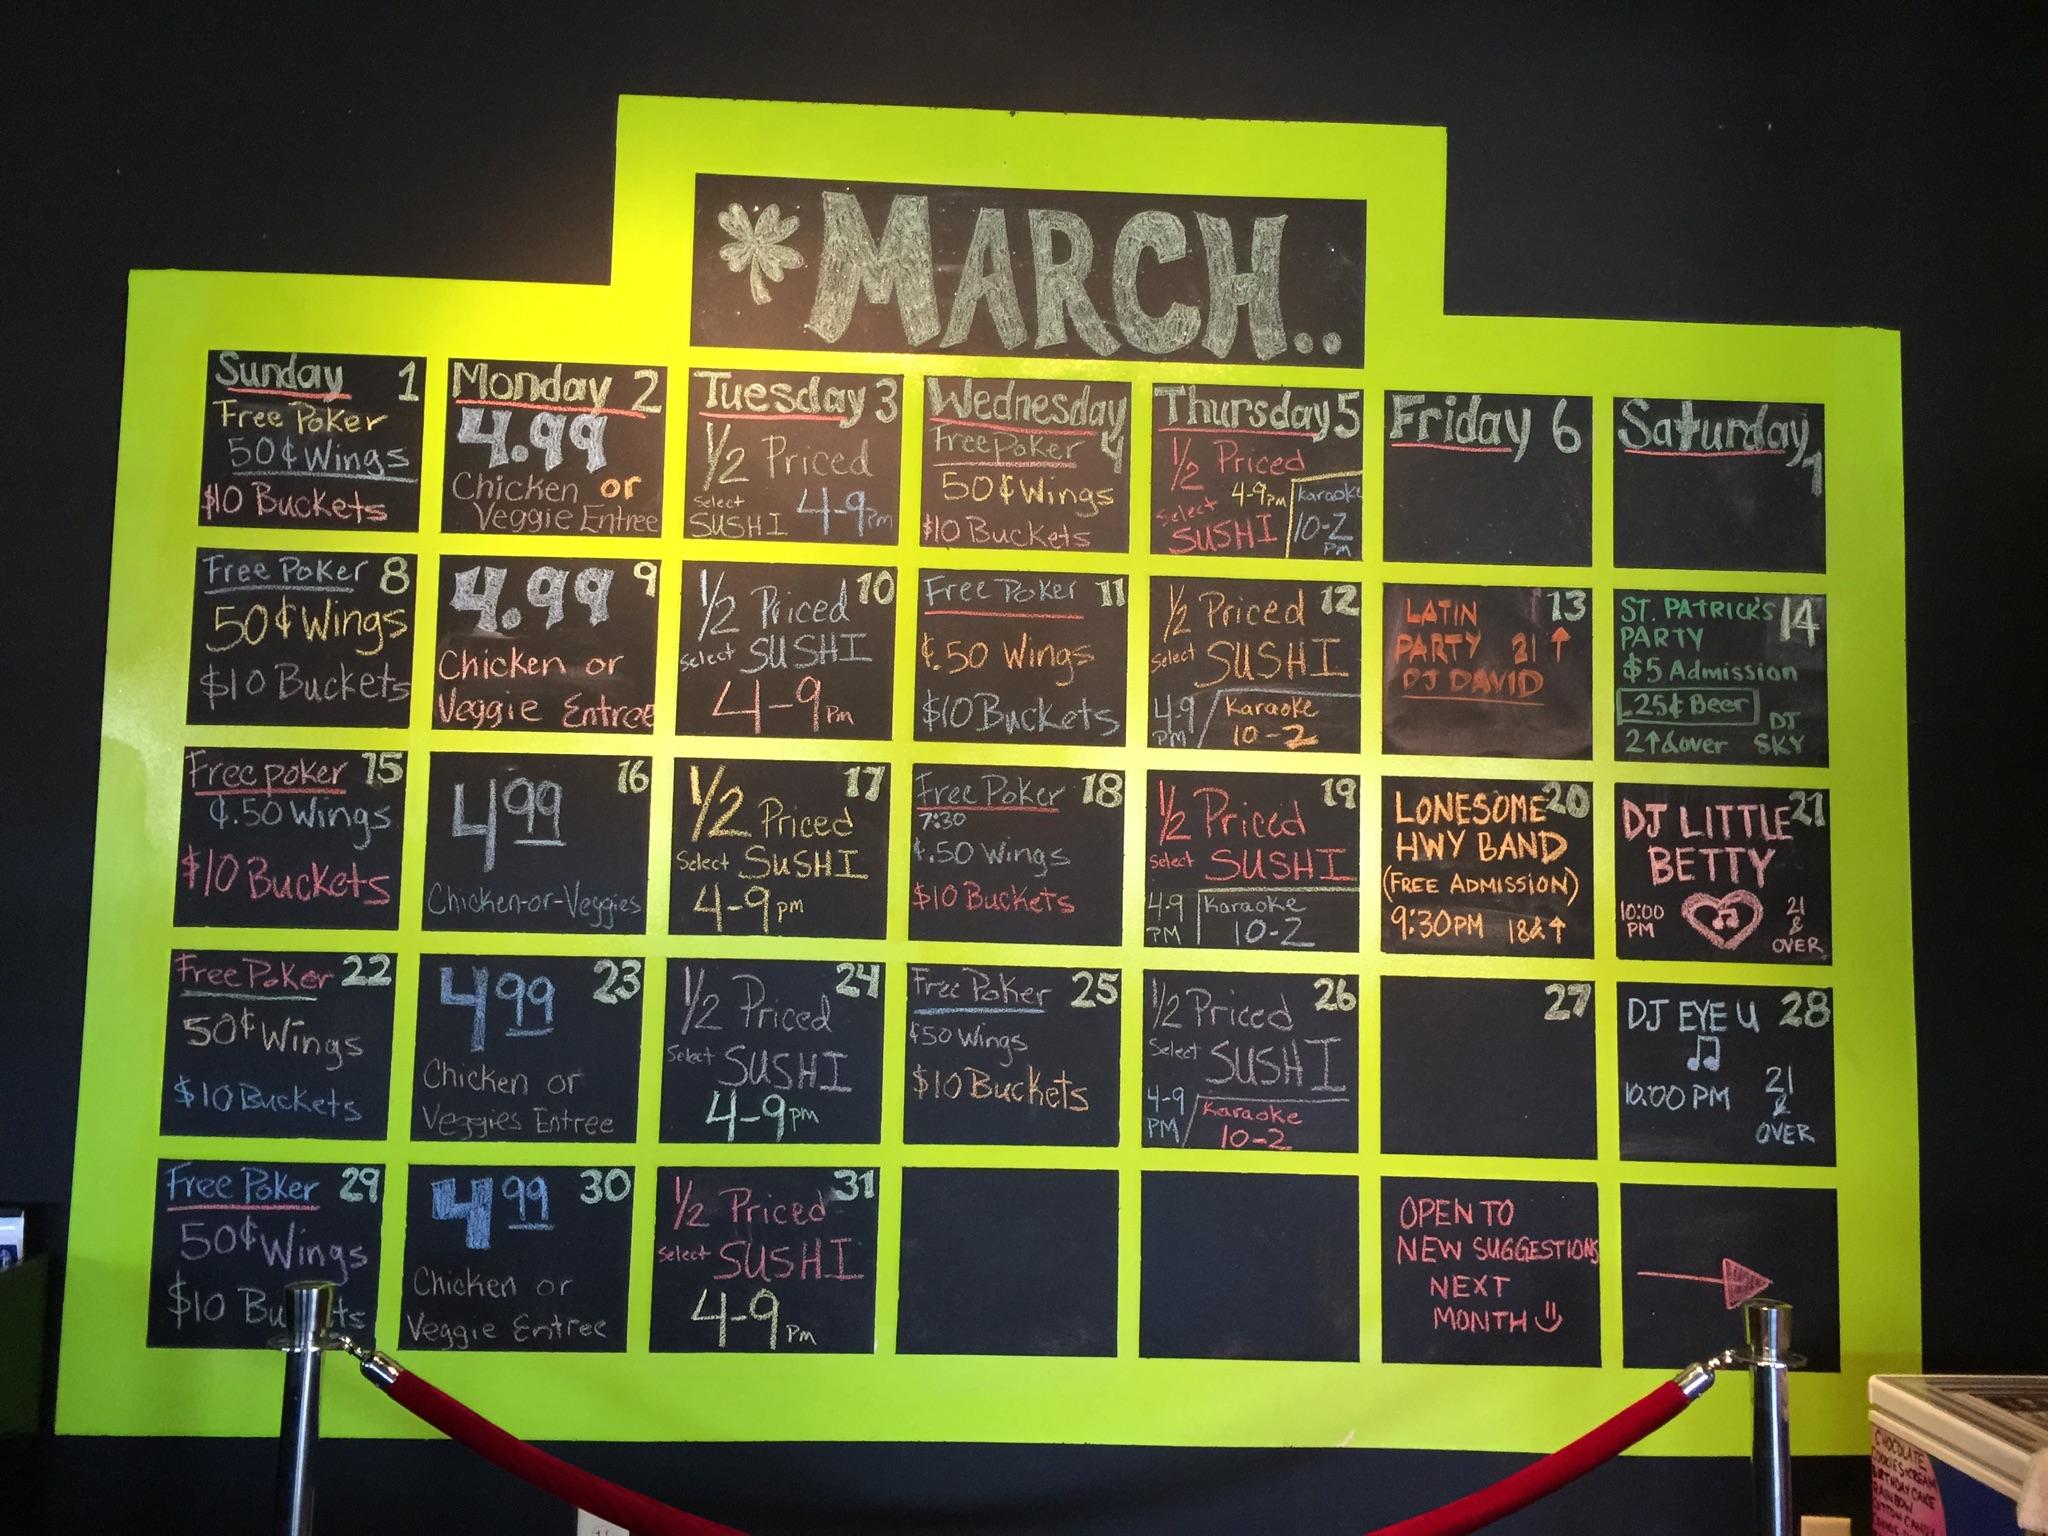 MARCH..
Sunday 1
Free Poker
50¢ Wings
$10 Buckets
Monday 2
4.99
Chicken or
Veggie Entree
Tuesday 3
1/2 Priced
Select
SUSHI 4-9pm
Wednesday
4
Free poker
50¢ Wings
$10 Buckets
Thursday 5
1/2 Priced
Select
SUSHI
4-9pm
Karaoke
10-2
PM
Friday 6
Saturday
7
Free Poker 8
50¢ Wings
$10 Buckets
9
4.99
Chicken or
Veggie Entree
1/2 Priced 10
Select SUSHI
4-9pm
Free Poker 11
¢.50 Wings
$10 Buckets
1/2 Priced 12
Select SUSHI
4-9
PM
Karaoke
10-2
LATIN 13
PARTY 21↑
DJ DAVID
ST. PATRICK'S 14
PARTY
$5 Admission
.25¢ Beer
2↑&over
DJ
SKY
Free poker 15
¢.50 Wings
$10 Buckets
16
4 99
Chicken-or-Veggies
17
1/2 Priced
Select SUSHI
4-9pm
Free Poker 18
7:30
¢.50 Wings
$10 Buckets
19
1/2 Priced
Select SUSHI
4-9
PM
Karaoke
10-2
LONESOME 20
HWY BAND
(FREE ADMISSION)
9:30PM 18&↑
DJ LITTLE 21
BETTY
10:00
PM
21
&
OVER
Free Poker 22
50¢ Wings
$10 Buckets
4 99 23
Chicken or
Veggies Entree
24
1/2 Priced
Select SUSHI
4-9pm
Free Poker 25
¢50 Wings
$10 Buckets
26
1/2 Priced
Select SUSHI
4-9
PM
Karaoke
10-2
27
DJ EYE U 28
10:00 PM
21
&
OVER
Free Poker 29
50¢ Wings
$10 Buckets
4 99 30
Chicken or
Veggie Entree
31
1/2 Priced
Select SUSHI
4-9pm
OPEN TO
NEW SUGGESTIONS
NEXT
MONTH
CHOCOLATE
COOKIES & CREAM
BIRTHDAY CAKE
RAINBOW
COTTON CANDY